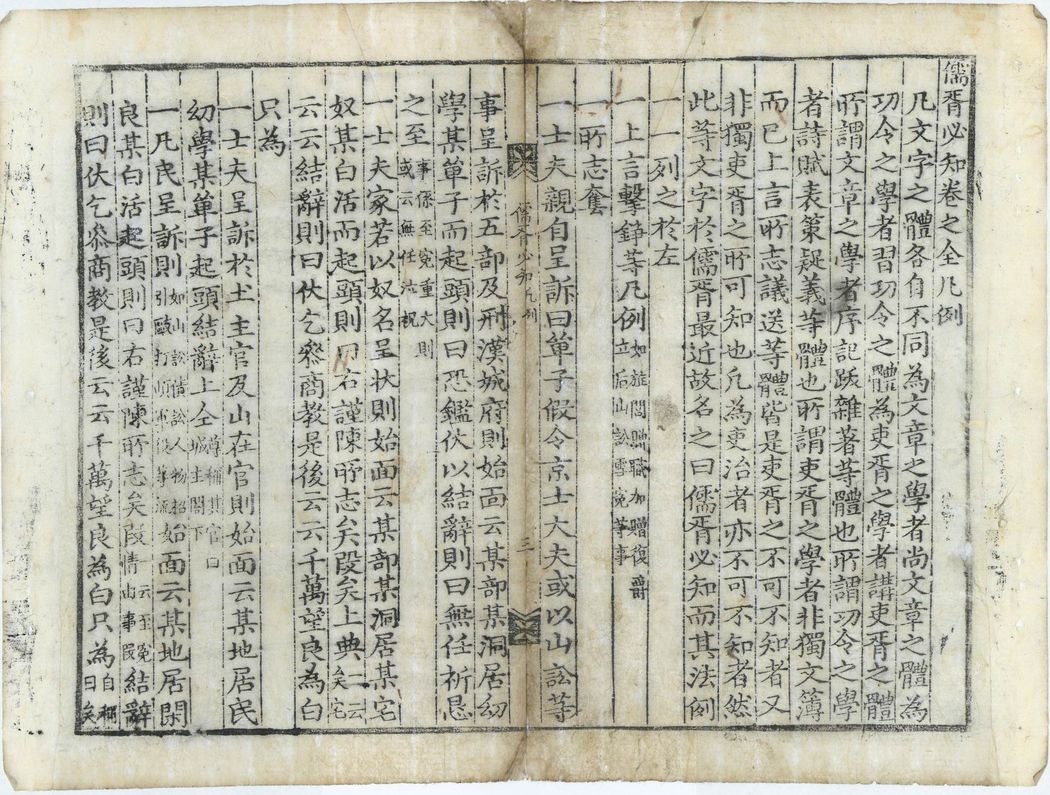 儒胥必知卷之全凡例
凡文字之體各自不同為文章之學者尚文章之體為
功令之學者習功令之體為吏胥之學者講吏胥之體
所謂文章之學者序記跋雜著等體也所謂功令之學
者詩賦表策疑義等體也所謂吏胥之學者非獨文簿
而已上言所志議送等體皆是吏胥之不可不知者又
非獨吏胥之所可知也凡為吏治者亦不可不知者然
此等文字於儒胥最近故名之曰儒胥必知而其法例
一一列之於左
一上言擊錚等凡例如旌閭贈職加贈復爵立后山訟雪冤等事
一所志套
一士夫親自呈訴曰單子假令京士大夫或以山訟等
儒胥必知凡例 三
事呈訴於五部及刑漢城府則始面云某部某洞居幼
學某單子而起頭則曰恐鑑伏以結辭則曰無任祈恳
之至事係至冤重大則或云無任泣祝
一士夫家若以奴名呈状則始面云某部某洞居某宅
奴某白活而起頭則曰右謹陳所志矣段矣上典一云矣宅
云云結辭則曰伏乞叅商教是後云云千萬望良為白
只為
一士夫呈訴於土主官及山在官則始面云某地居民
幼學某單子起頭結辭上仝尊稱其官曰城主閤下
一凡民呈訴則如山訟債訟人物招引毆打頉軍役等流始面云某地居閑
良某白活起頭則曰右謹陳所志矣段情由事段云至冤結辭
則曰伏乞叅商教是後云云千萬望良為白只為自稱曰矣